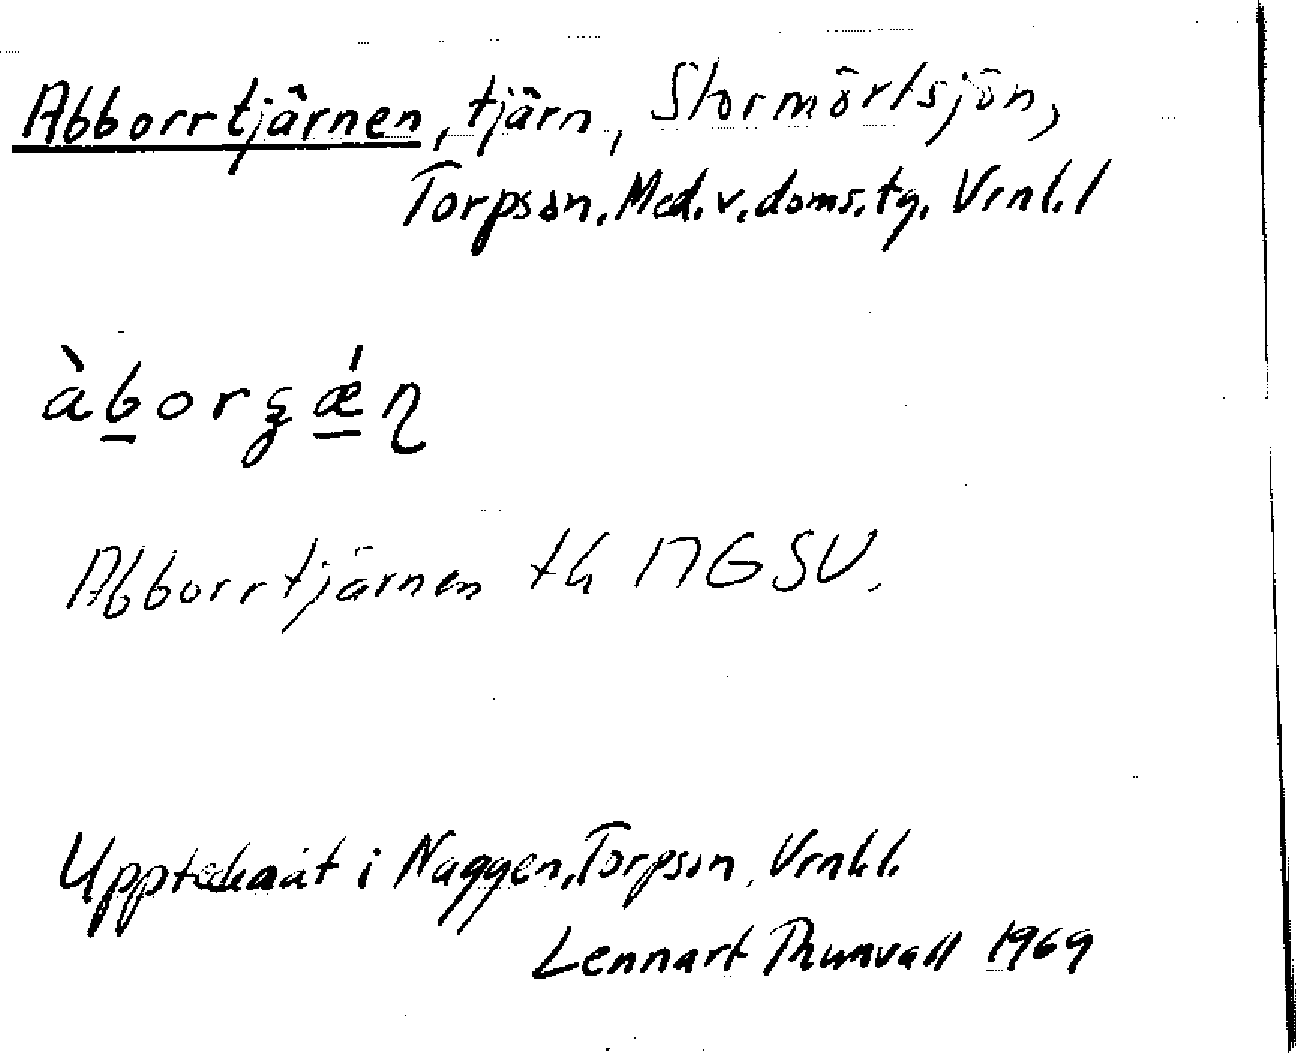 Abborrtjärnen, tjärn, Stormörtsjön,
Torpson. Med. v. doms. tg. Vrnl. l
àborʂǽn
Abborrtjärnen tk NGSV.
Upptecknat i Naggen, Torpson, Vrnl. l.
Lennart Thunvall 1969